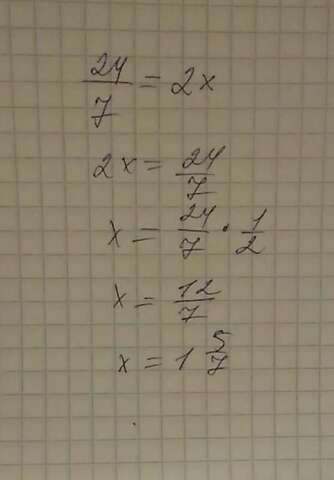 24/7 = 2x
2x = 24/7
x = 24/7 · 1/2
x = 12/7
x = 1 5/7